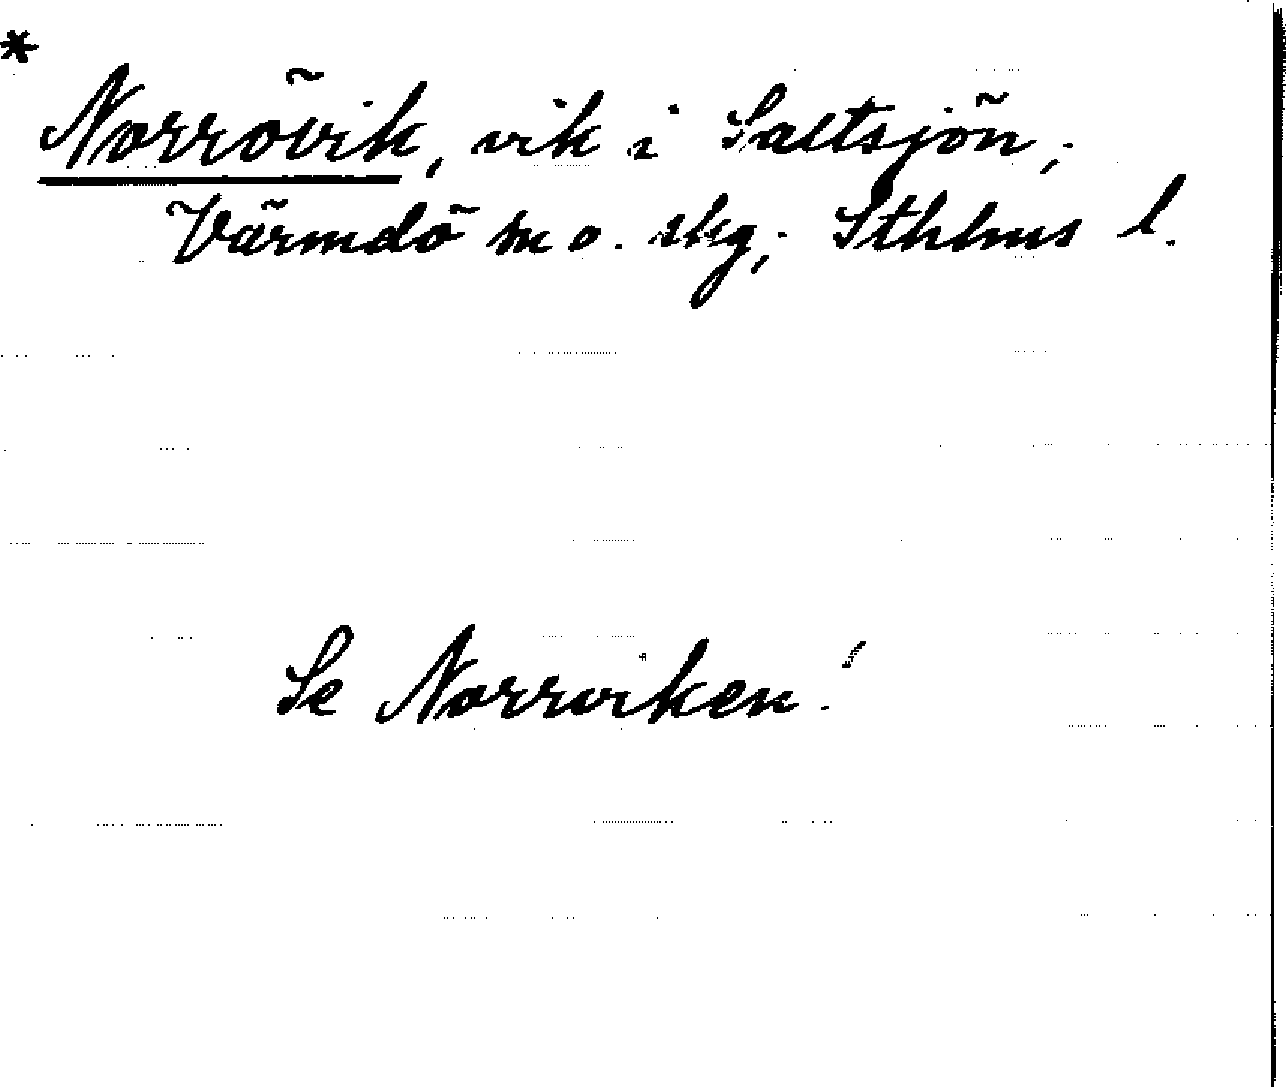 *
Norrövik, vik i Saltsjön;
Värmdö sn o. skg; Sthlms l.
Se Norrviken!